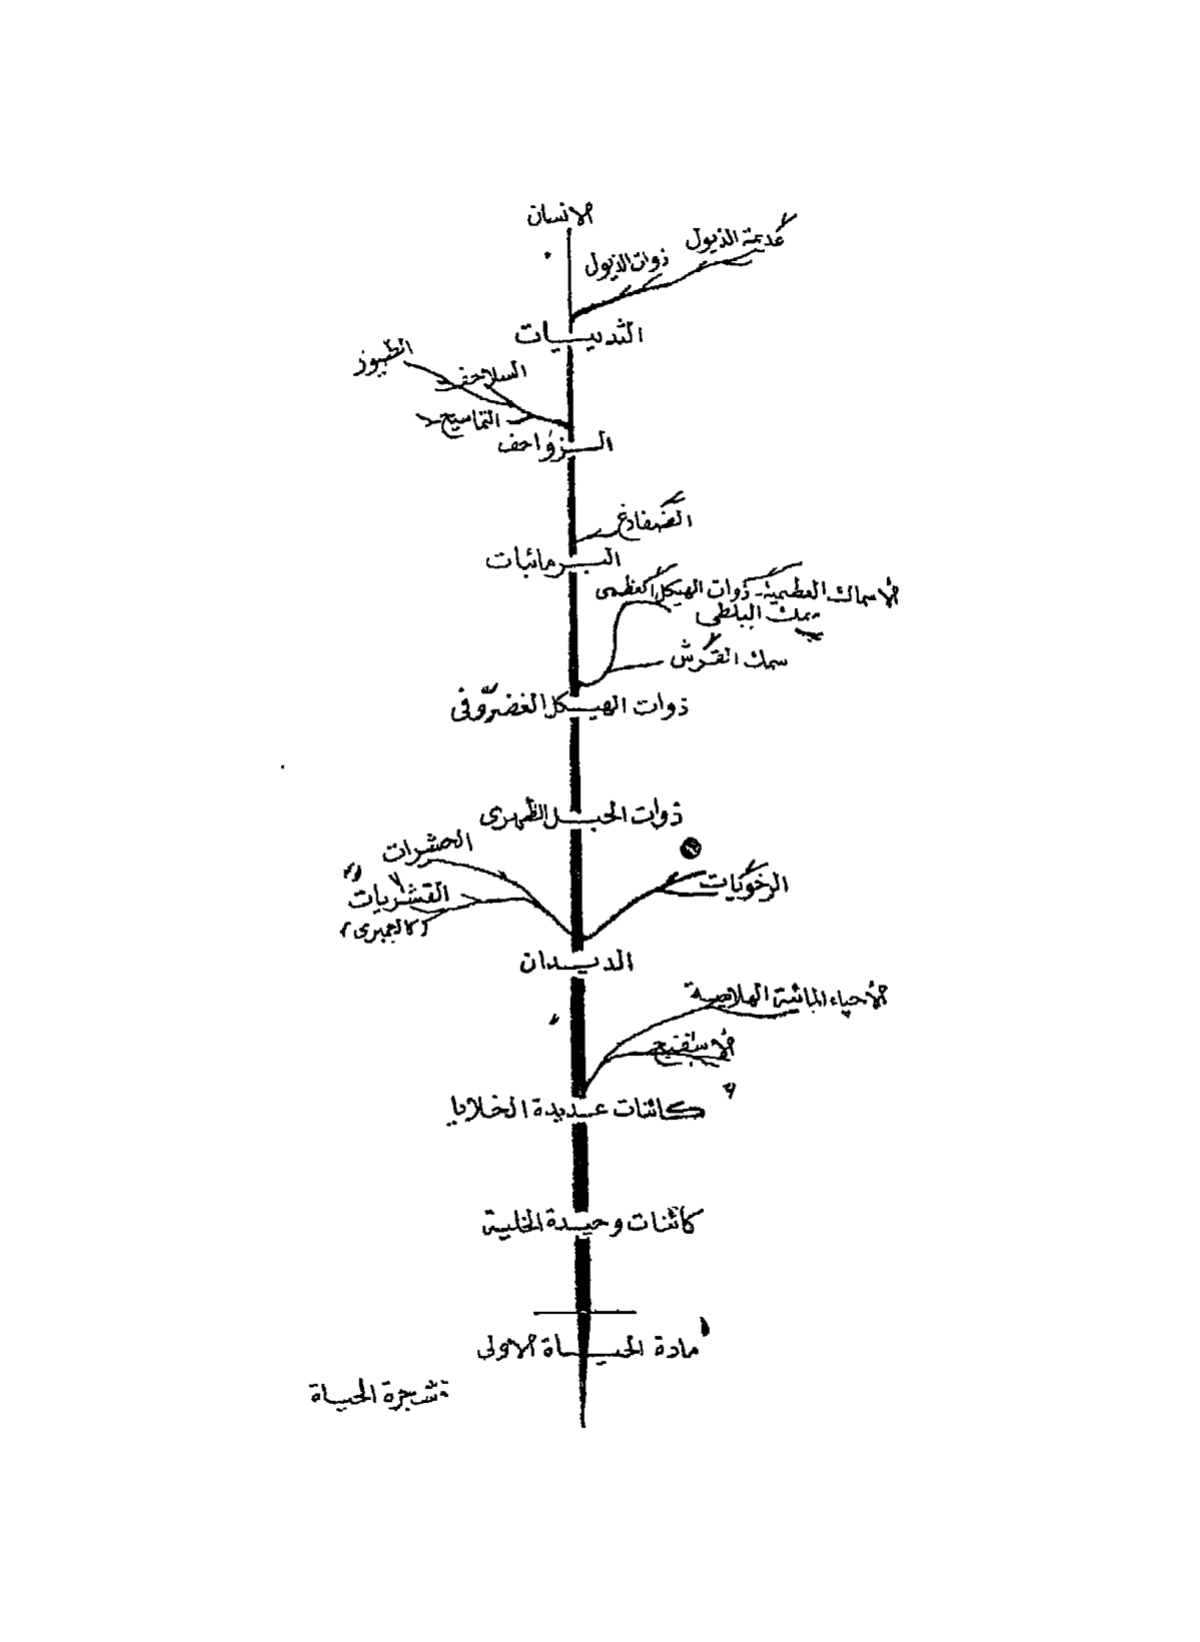 الانسان
عديمة الذيول
ذوات الذيول
الثدييات
الطيور
السلاحف
التماسيح
الزواحف
الضفادع
البرمائيات
الأسماك العظمية - ذوات الهيكل العظمى
سمك البلطى
سمك القرش
ذوات الهيكل الغضروفى
ذوات الحبل الظهرى
الحشرات
الرخويات
القشريات
(كالجمبرى)
الديدان
الأحياء المائية الهلامية
الاسفنج
كائنات عديدة الخلايا
كائنات وحيدة الخلية
مادة الحياة الاولى
شجرة الحياة